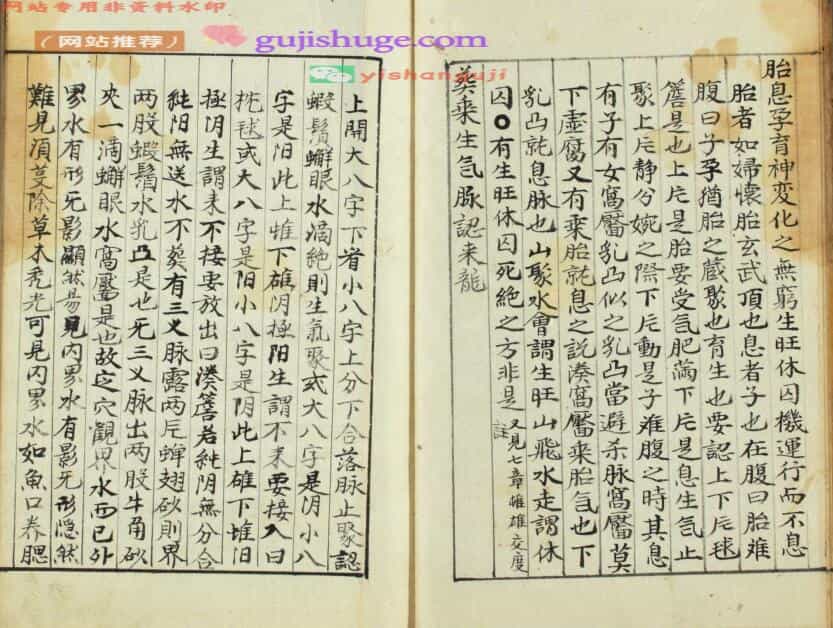 网站专用非资料水印
(网站推荐)
gujishuge.com
yishanguji
胎息孕育神变化之無窮生旺休囚機運行而不息
胎者如婦懷胎玄武頂也息者子也在腹曰胎难
腹曰子孕猶胎之蔵聚也育生也要認上下斤毬
簷是也上斤是胎要受气肥满下斤是息生气止
聚上斤静兮婉之際下斤動是子难腹之時其息
有子有女窩靨乳凸似之乳凸當避杀脉窩靨莫
下虚窩又有乘胎就息之説湊窩靨乘胎气也下
乳凸就息脉也山聚水會謂生旺山飛水走謂休
囚○有生旺休囚死絶之方非是 註又見七章雌雄交度
葬乘生气脉認来龍
上開大八字下肴小八字上分下合落脉止聚認
蝦鬚蠏眼水滴絶則生氣聚或大八字是阴小八
字是阳此上雌下雄阴極阳生謂不来要接入曰
枕毬或大八字是阳小八字是阴此上雄下雌阳
極阴生謂来不接要放出曰湊簷若純阴無分合
純阳無送水不葬有三义脉露两斤蝉翅砂則界
两股蝦鬚水乳凸是也无三义脉出两股牛角砂
夾一滴蠏眼水窩靨是也故定穴觀界水而已外
界水有形无影顯然易見内界水有影无形隐然
難見須蔓除草木秃光可見内界水如魚口养腮